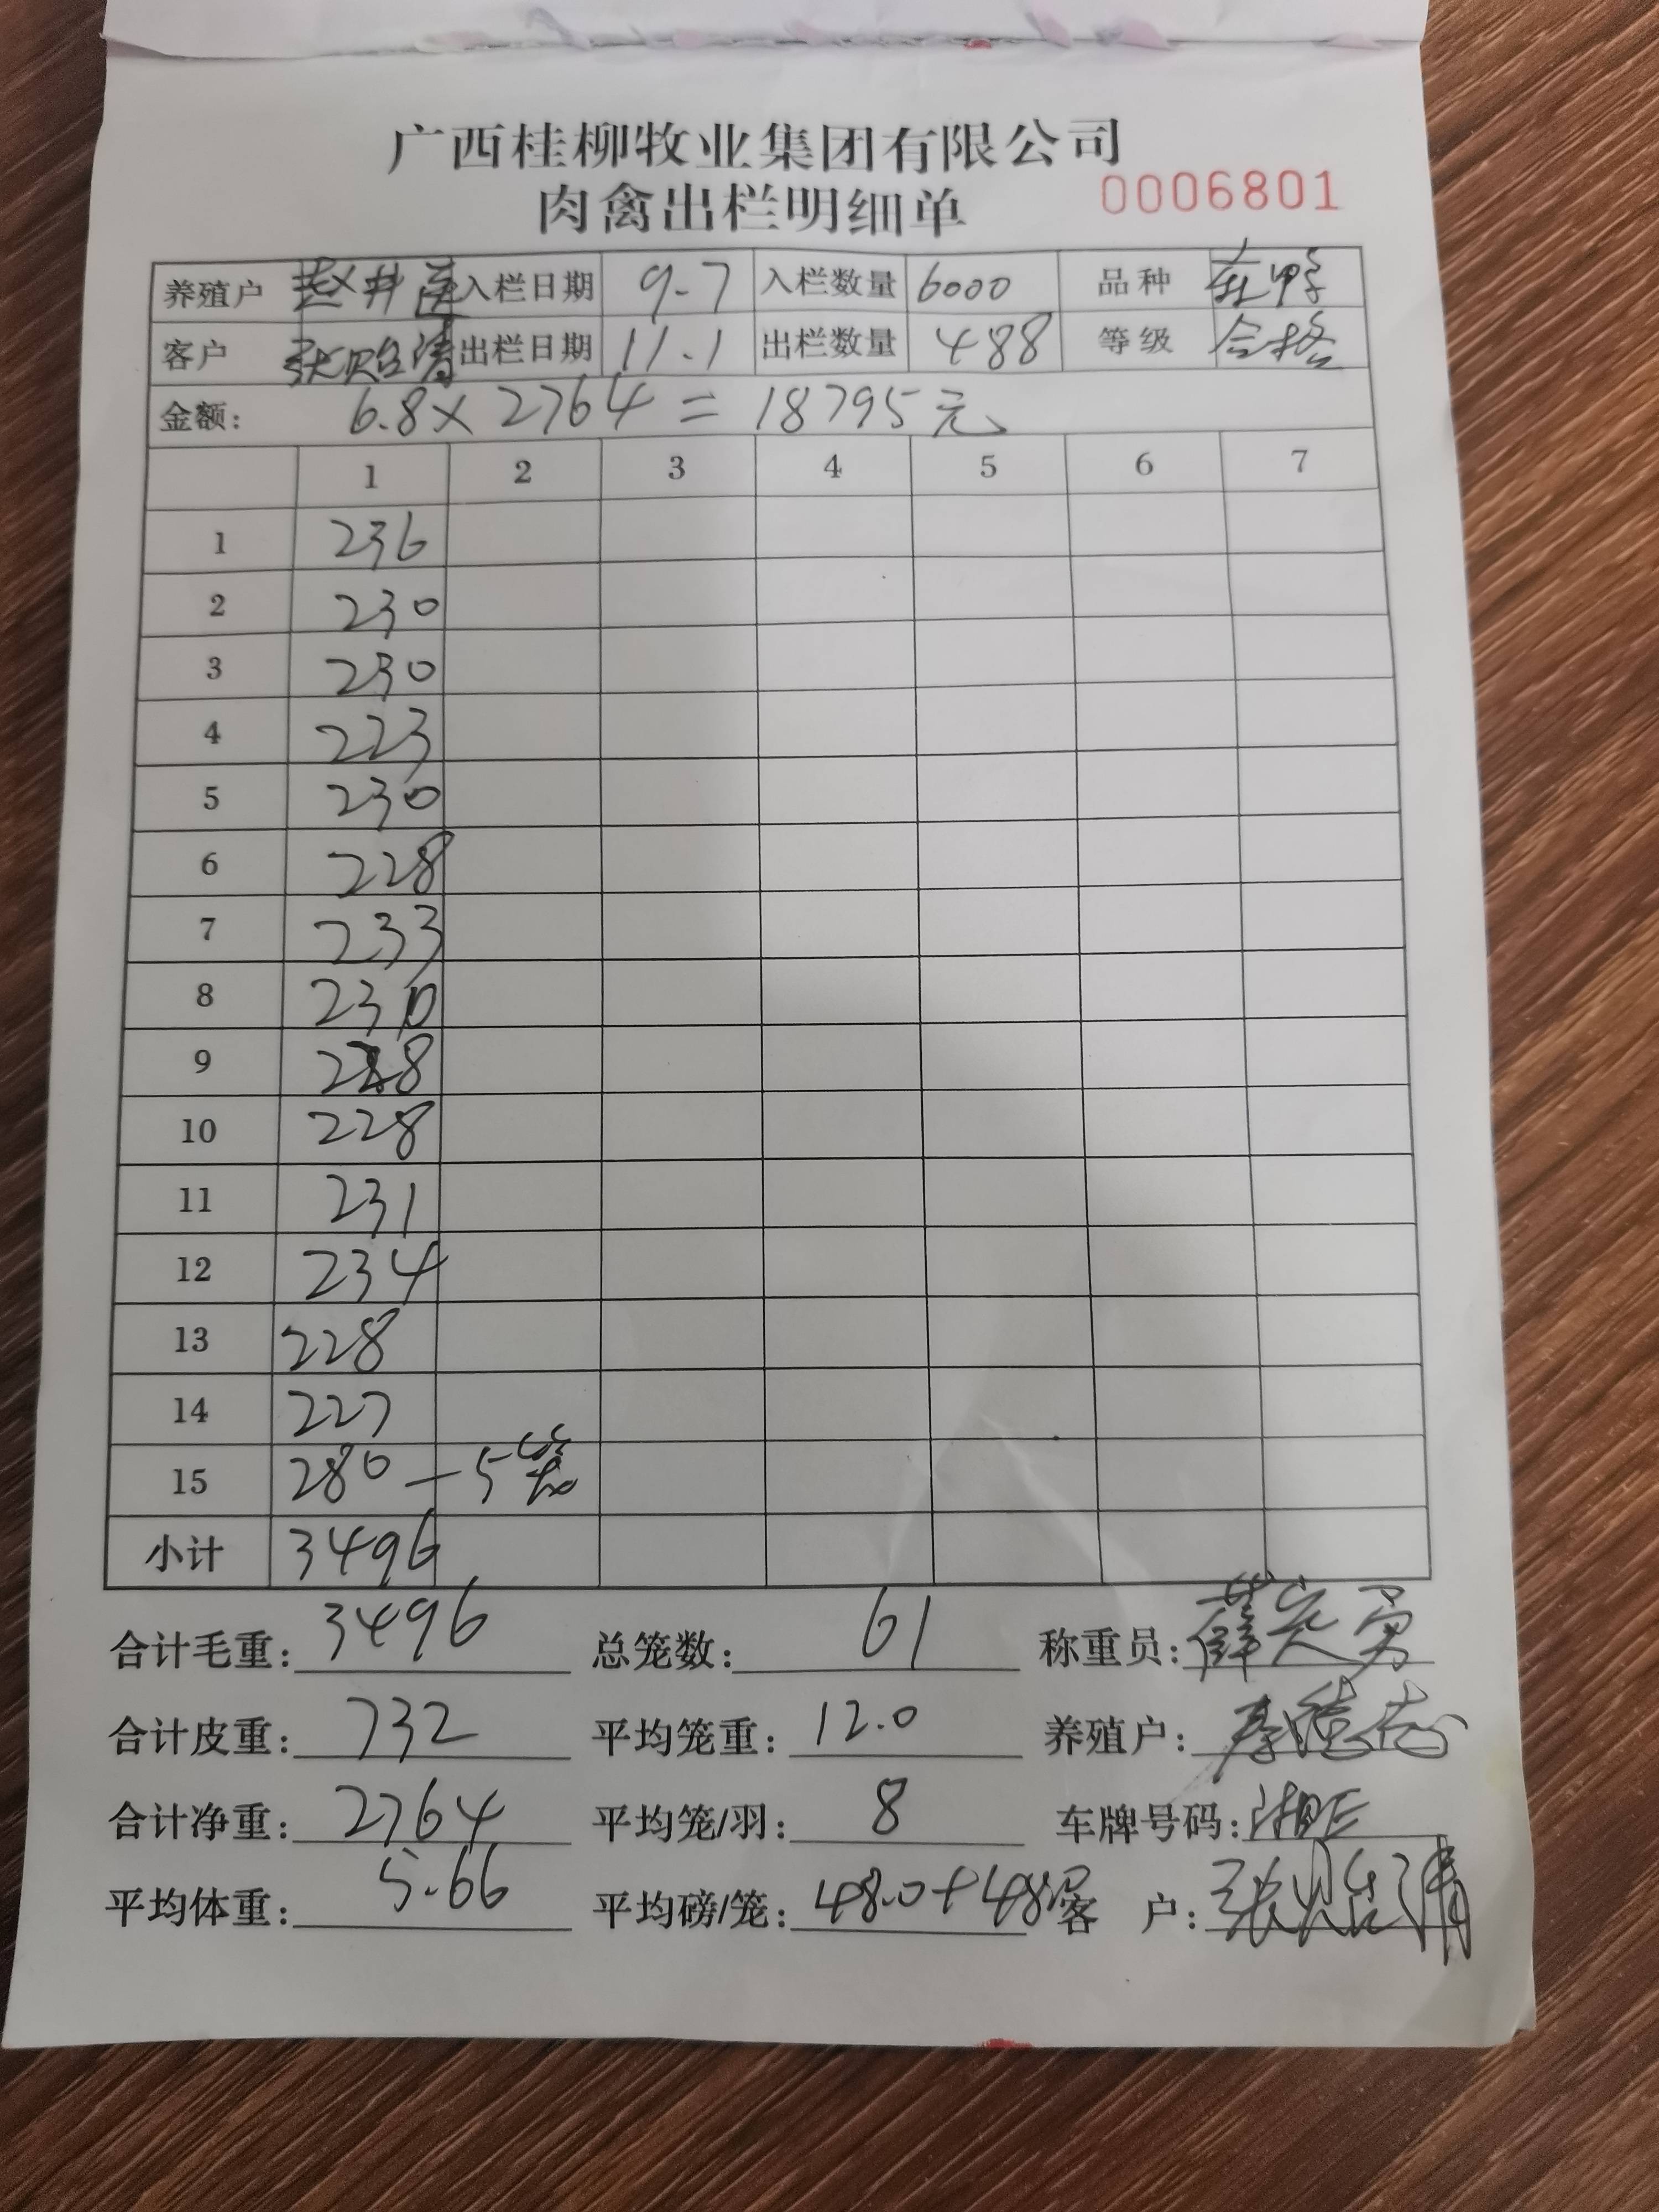 广西桂柳牧业集团有限公司
肉禽出栏明细单 0006801
养殖户 赵井莲 入栏日期 9.7 入栏数量 6000 品种
客户 张贻清 出栏日期 11.1 出栏数量 488 等级 合格
金额: 6.8×2764=18795元
1 2 3 4 5 6 7
1 236
2 230
3 230
4 223
5 230
6 228
7 233
8 230
9 228
10 228
11 231
12 234
13 228
14 227
15 280—5笼
小计 3496
合计毛重: 3496 总笼数: 61 称重员:
合计皮重: 732 平均笼重: 12.0 养殖户:
合计净重: 2764 平均笼/羽: 8 车牌号码:
平均体重: 5.66 平均磅/笼: 客户: 张贻清